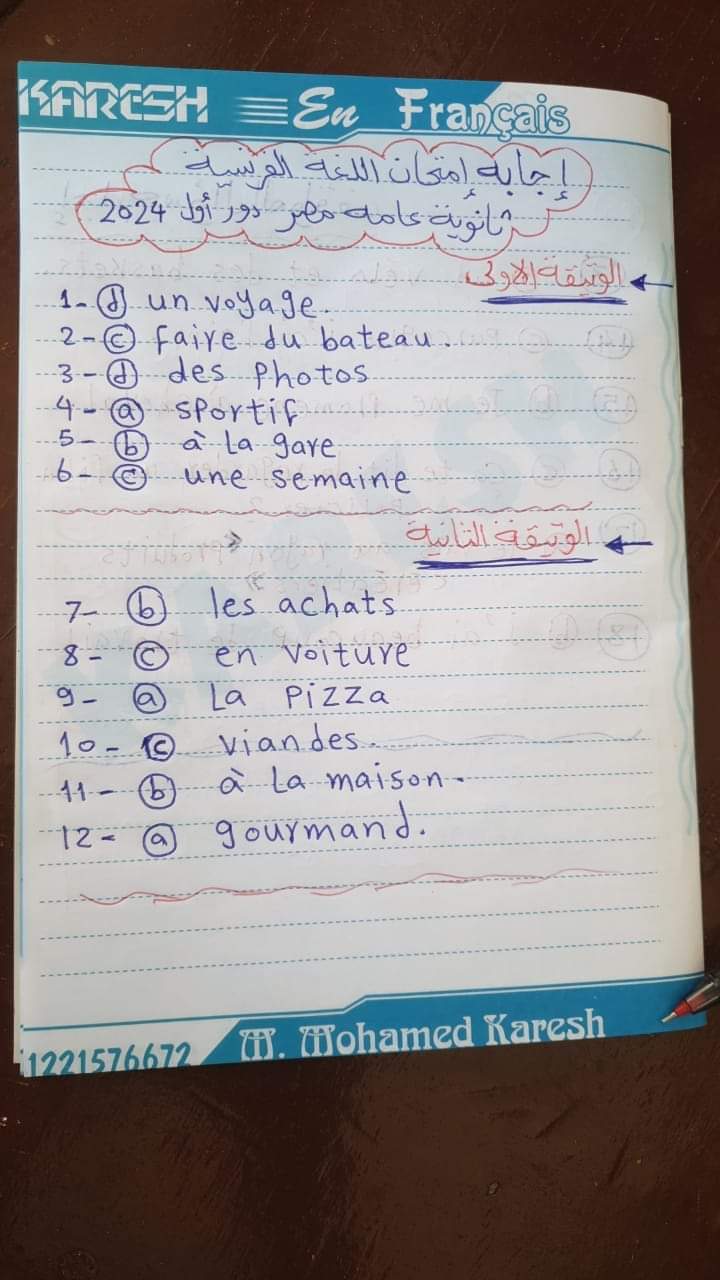 KARESH En Français
إجابه إمتحان اللغة الفرنسية
ثانوية عامه مصر دور أول 2024
الوثيقة الاولى
1- d un voyage.
2- c faire du bateau.
3- d des photos
4- a sportif
5- b à la gare
6- c une semaine
الوثيقة الثانية
7- b les achats
8- c en voiture
9- a La Pizza
10- c viandes.
11- b à la maison.
12- a gourmand.
1221576672 M. Mohamed Karesh